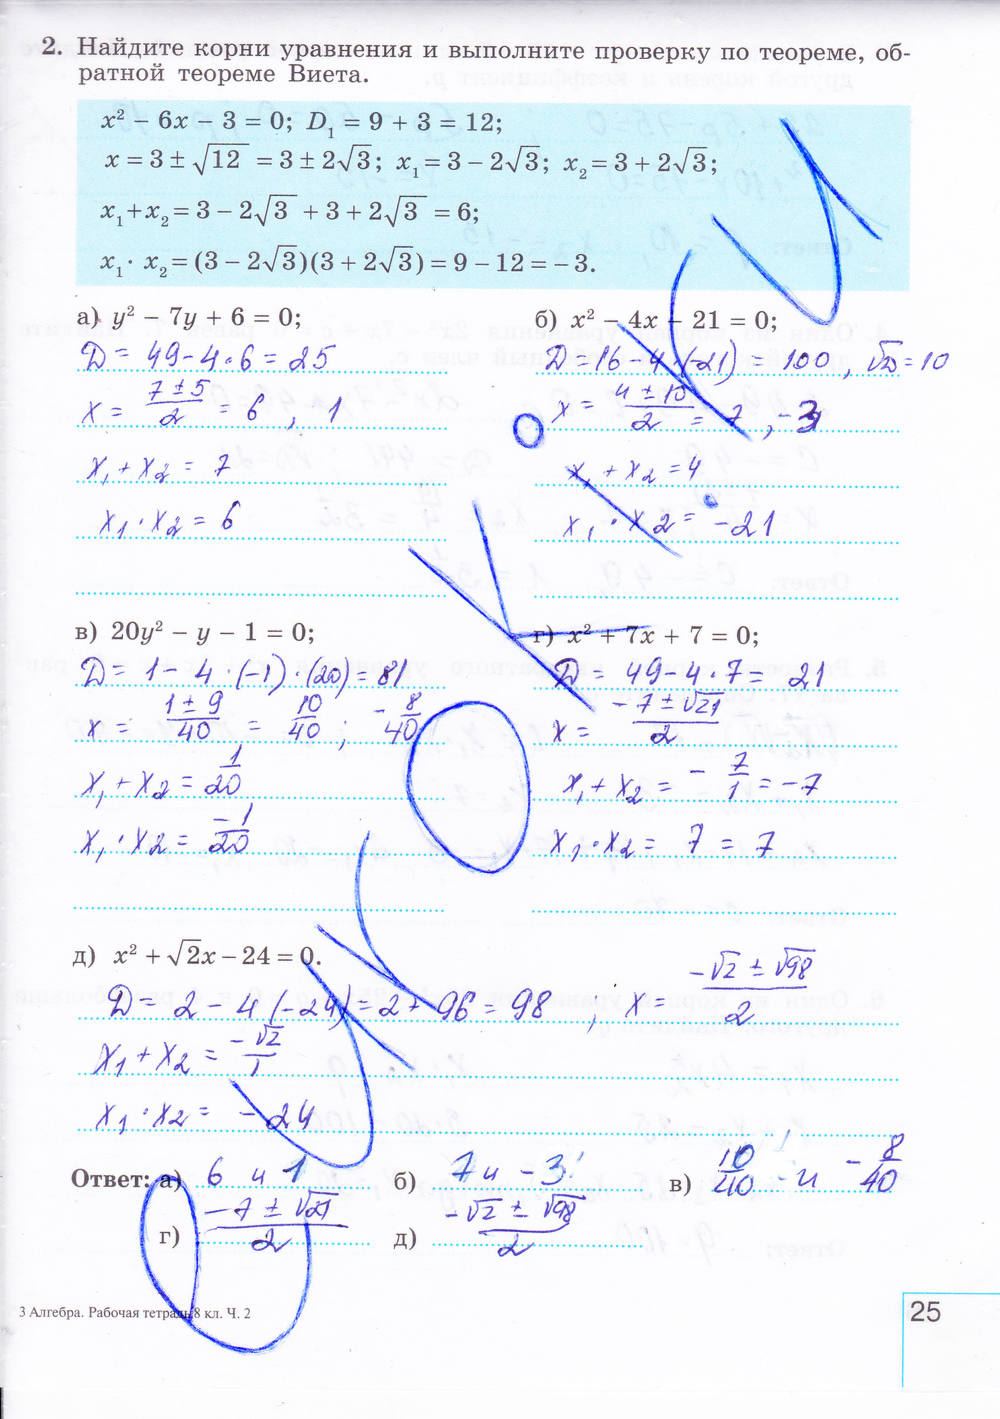 2. Найдите корни уравнения и выполните проверку по теореме, об-
ратной теореме Виета.
x² − 6x − 3 = 0; D₁ = 9 + 3 = 12;
x = 3 ± √12 = 3 ± 2√3; x₁ = 3 − 2√3; x₂ = 3 + 2√3;
x₁ + x₂ = 3 − 2√3 + 3 + 2√3 = 6;
x₁ · x₂ = (3 − 2√3)(3 + 2√3) = 9 − 12 = −3.
а) y² − 7y + 6 = 0;
D = 49 − 4·6 = 25
x = (7 ± 5)/2 = 6 , 1
x₁ + x₂ = 7
x₁ · x₂ = 6
б) x² − 4x − 21 = 0;
D = 16 − 4 (−21) = 100 , √D = 10
x = (4 ± 10)/2 = 7 , −3
x₁ + x₂ = 4
x₁ · x₂ = −21
в) 20y² − y − 1 = 0;
D = 1 − 4 · (−1) · (20) = 81
x = (1 ± 9)/40 = 10/40 ; −8/40
x₁ + x₂ = 1/20
x₁ · x₂ = −1/20
г) x² + 7x + 7 = 0;
D = 49 − 4·7 = 21
x = (−7 ± √21)/2
x₁ + x₂ = −7/1 = −7
x₁ · x₂ = 7 = 7
д) x² + √2x − 24 = 0.
D = 2 − 4 (−24) = 2 + 96 = 98 ; x (−√2 ± √98)/2
x₁ + x₂ = −√2/1
x₁ · x₂ = −24
Ответ: а) 6 и 1 б) 7 и −3 в) 10/40 и −8/40
г) (−7 ± √21)/2 д) (−√2 ± √98)/2
3 Алгебра. Рабочая тетрадь 8 кл. Ч. 2
25